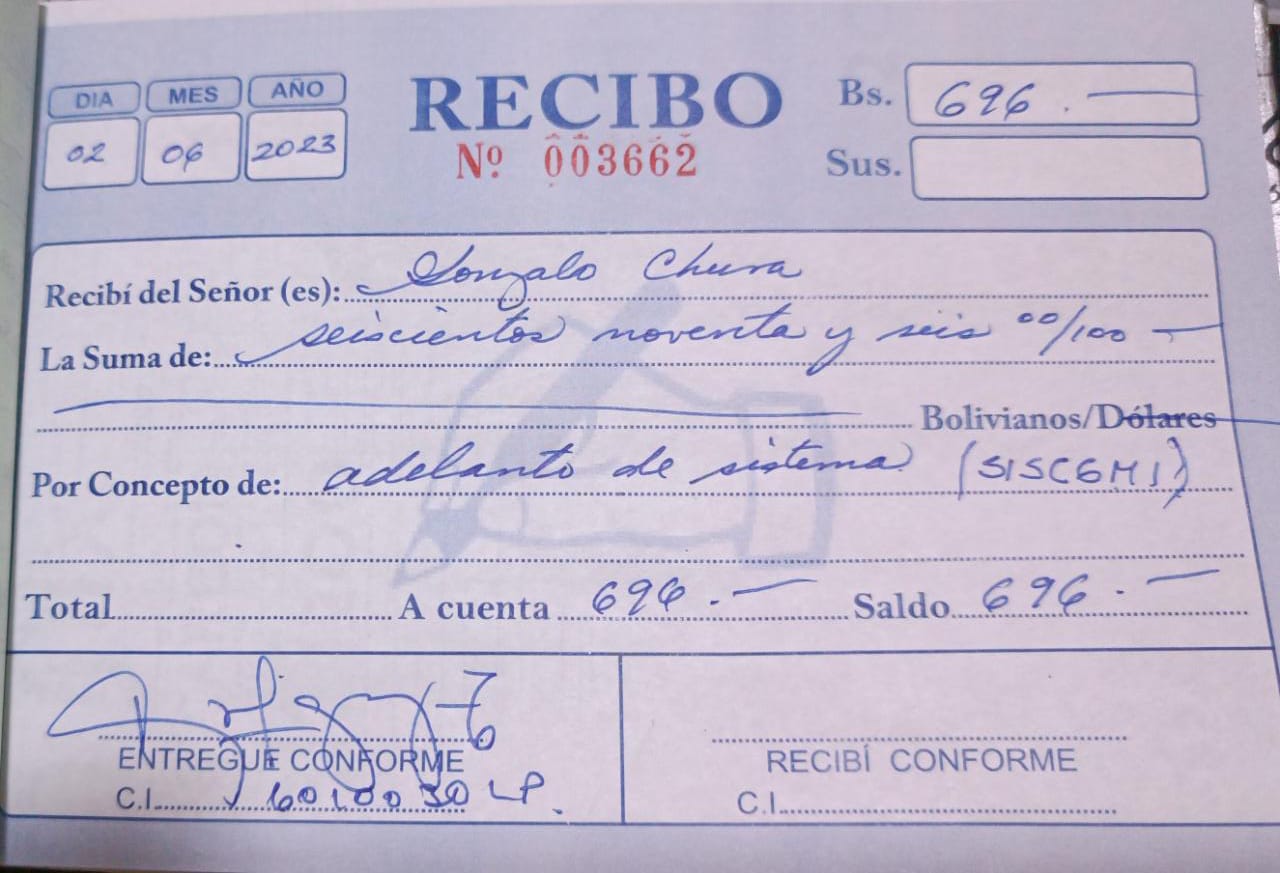 DIA MES AÑO
02 06 2023
RECIBO
Nº 003662
Bs. 696.—
Sus.
Recibí del Señor (es): Gonzalo Chura
La Suma de: seiscientos noventa y seis 00/100 —
Bolivianos/Dólares
Por Concepto de: adelanto de sistema (SISCEMI)
Total A cuenta 696.— Saldo 696.—
ENTREGUE CONFORME
C.I. LP.
RECIBÍ CONFORME
C.I.